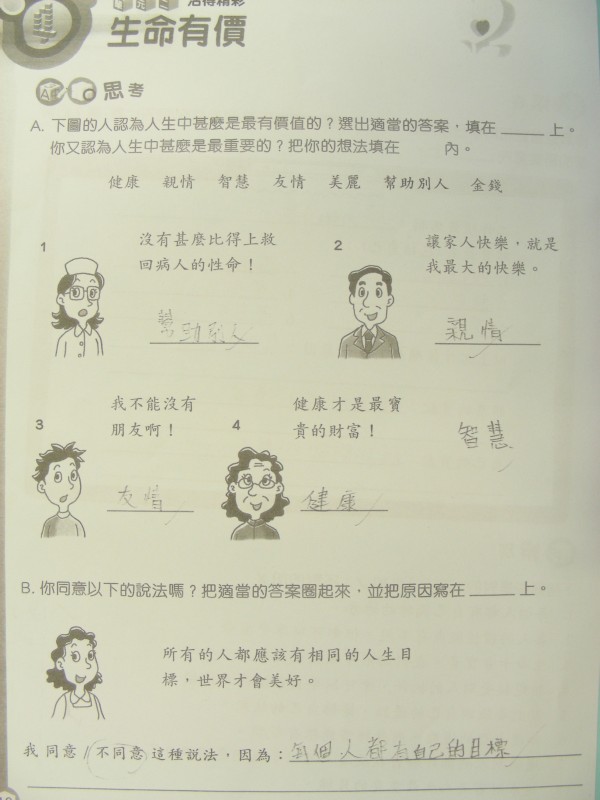 活得精彩
生命有價
思考
A. 下圖的人認為人生中甚麼是最有價值的？選出適當的答案，填在 ______ 上。
你又認為人生中甚麼是最重要的？把你的想法填在 內。
健康 親情 智慧 友情 美麗 幫助別人 金錢
1
沒有甚麼比得上救
回病人的性命！
幫助別人
2
讓家人快樂，就是
我最大的快樂。
親情
3
我不能沒有
朋友啊！
友情
4
健康才是最寶
貴的財富！
健康
智慧
B. 你同意以下的說法嗎？把適當的答案圈起來，並把原因寫在 ______ 上。
所有的人都應該有相同的人生目
標，世界才會美好。
我 同意 / 不同意 這種說法，因為：每個人都有自己的目標